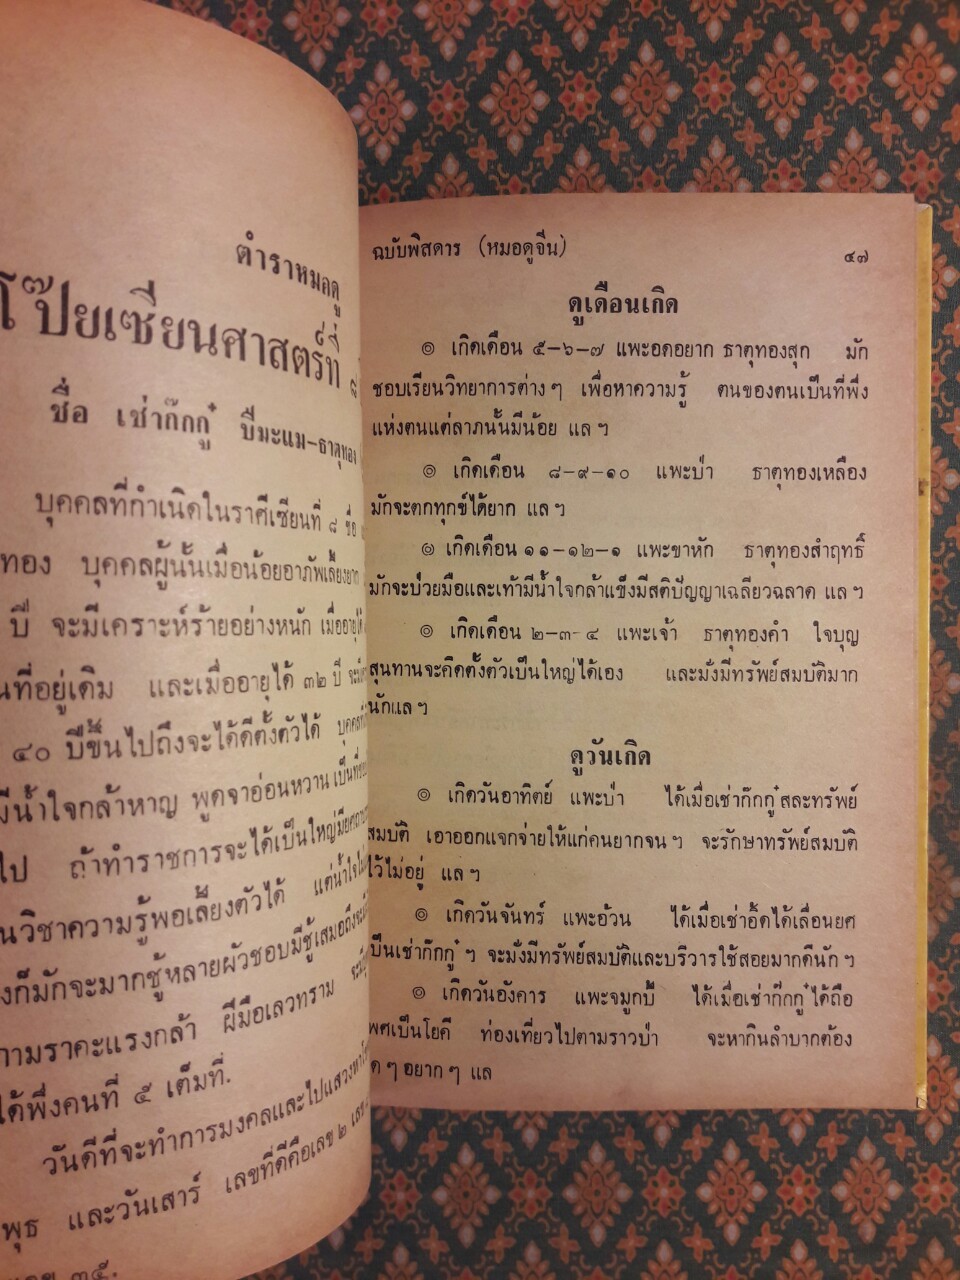 ตำราหมอดู
โป๊ยเซียนศาสตร์ที่ ๘
ชื่อ เซ่าก๊กกู๋ ปีมะแม-ธาตุทอง
บุคคลที่กำเนิดในราศีเซียนที่ ๘ ชื่อ
ทอง บุคคลผู้นั้นเมื่อน้อยอาภัพเลี้ยงยาก
ปี จะมีเคราะห์ร้ายอย่างหนัก เมื่ออายุได้
นที่อยู่เดิม และเมื่ออายุได้ ๓๒ ปี
๔๐ ปีขึ้นไปถึงจะได้ดีตั้งตัวได้
มีน้ำใจกล้าหาญ พูดจาอ่อนหวาน เป็นที่
ไป ถ้าทำราชการจะได้เป็นใหญ่มียศ
นวิชาความรู้พอเลี้ยงตัวได้ แต่น้ำใจ
งก็มักจะมากชู้หลายผัวชอบมีชู้เสมอถึง
กามราคะแรงกล้า ฝีมือเลวทราม
ได้พึ่งคนที่ ๕ เต็มที่.
วันดีที่จะทำการมงคลและไปแสวงหา
พุธ และวันเสาร์ เลขที่ดีคือเลข ๒ เลข
๓๕.
ฉบับพิสดาร (หมอดูจีน) ๔๗
ดูเดือนเกิด
๏ เกิดเดือน ๕-๖-๗ แพะอดอยาก ธาตุทองสุก มัก
ชอบเรียนวิทยาการต่างๆ เพื่อหาความรู้ ตนของตนเป็นที่พึ่ง
แห่งตนแต่ลาภนั้นมีน้อย แล ฯ
๏ เกิดเดือน ๘-๙-๑๐ แพะป่า ธาตุทองเหลือง
มักจะตกทุกข์ได้ยาก แล ฯ
๏ เกิดเดือน ๑๑-๑๒-๑ แพะขาหัก ธาตุทองสำฤทธิ์
มักจะป่วยมือและเท้ามีน้ำใจกล้าแข็งมีสติปัญญาเฉลียวฉลาด แล ฯ
๏ เกิดเดือน ๒-๓-๔ แพะเจ้า ธาตุทองคำ ใจบุญ
สุนทานจะคิดตั้งตัวเป็นใหญ่ได้เอง และมั่งมีทรัพย์สมบัติมาก
นักแล ฯ
ดูวันเกิด
๏ เกิดวันอาทิตย์ แพะป่า ได้เมื่อเซ่าก๊กกู๋สละทรัพย์
สมบัติ เอาออกแจกจ่ายให้แก่คนยากจน ฯ จะรักษาทรัพย์สมบัติ
ไว้ไม่อยู่ แล ฯ
๏ เกิดวันจันทร์ แพะอ้วน ได้เมื่อเซ่าอี้ดได้เลื่อนยศ
เป็นเซ่าก๊กกู๋ ฯ จะมั่งมีทรัพย์สมบัติและบริวารใช้สอยมากดีนัก ฯ
๏ เกิดวันอังคาร แพะจมูกบี้ ได้เมื่อเซ่าก๊กกู๋ได้ถือ
พศเป็นโยคี ท่องเที่ยวไปตามราวป่า จะหากินลำบากต้อง
ดๆ อยากๆ แล